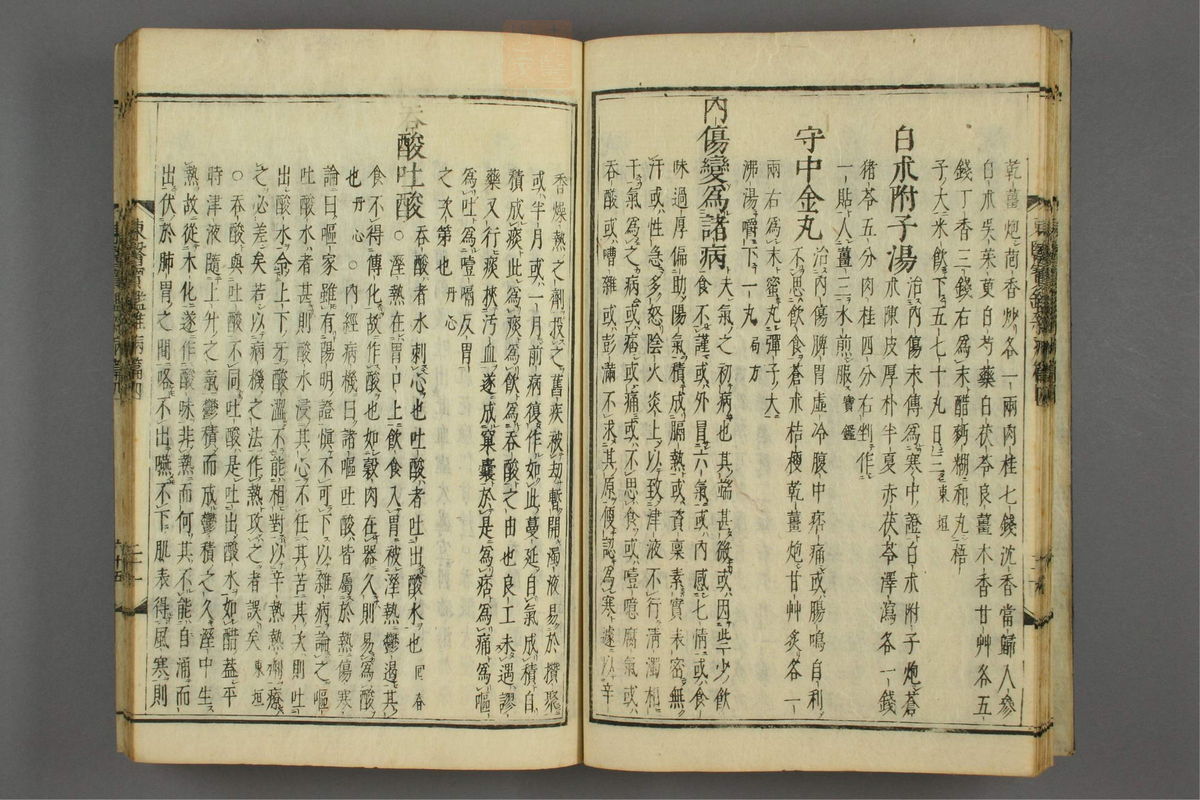 乾薑炮茴香炒各一兩肉桂七錢沈香當歸人參
白朮吳茱萸白芍藥白茯苓良薑木香甘艸各五
錢丁香三錢右爲末醋麪糊和丸梧
子大米飮下五七十丸日二三東垣
白朮附子湯治內傷末傳爲寒中證白朮附子炮蒼
朮陳皮厚朴半夏赤茯苓澤瀉各一錢
猪苓五分肉桂四分右剉作
一貼入薑三水煎服寶鑑
守中金丸治內傷脾胃虛冷腹中痞痛或腸鳴自利
不思飮食蒼朮桔梗乾薑炮甘艸炙各一
兩右爲末蜜丸彈子大
沸湯嚼下一丸局方
內傷變爲諸病夫氣之初病也其端甚微或因些少飮
食不謹或外冒六氣或內感七情或食
味過厚偏助陽氣積成膈熱或資稟素實表密無
汗或性急多怒陰火炎上以致津液不行淸濁相
干氣爲之病或痞或痛或不思食或噫腐氣或
吞酸或嘈雜或彭滿不求其原便認爲寒遽以辛
香燥熱之劑投之舊疾被劫暫開濁液易於攢聚
或半月或一月前病復作如此蔓延自氣成積自
積成痰此爲痰爲飮爲吞酸之由也良工未遇謬
藥又行痰挾汚血遂成窠囊於是爲痞爲痛爲嘔
爲吐爲噎膈反胃
之次第也丹心
吞酸吐酸吞酸者水刺心也吐酸者吐出酸水也回春
○溼熱在胃口上飮食入胃被溼熱鬱遏其
食不得傳化故作酸也如穀肉在器久則易爲酸
也丹心○內經病機曰諸嘔吐酸皆屬於熱傷寒
論曰嘔家雖有陽明證愼不可下以雜病論之嘔
吐酸水者甚則酸水浸其心不任其苦其次則吐
出酸水令上下牙酸澀不能相對以辛熱劑療
之必差矣若以病機之法作熱攻之者誤矣東垣
○吞酸與吐酸不同吐酸是吐出酸水如醋蓋平
時津液隨上升之氣鬱積而成鬱積之久溼中生
熱故從木化遂作酸味非熱而何其不能自涌而
出伏於肺胃之間咯不出嚥不下肌表得風寒則